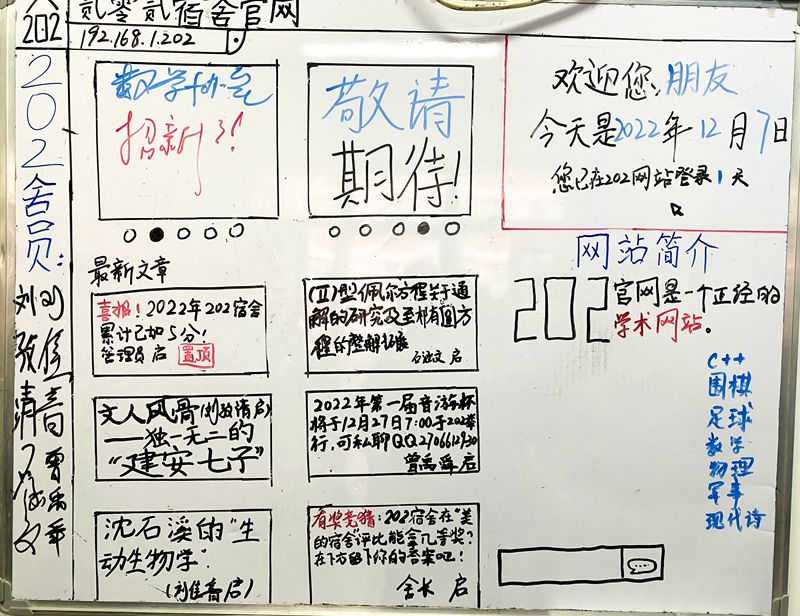 202
贰零贰宿舍官网
192.168.1.202
202舍员:
数学协会
招新了!
敬请
期待!
欢迎您,朋友
今天是2022年12月7日
您已在202网站登录1天
最新文章
喜报!2022年202宿舍
累计已加5分!
管理员 启 置顶
(II)型佩尔方程关于通
解的研究及至相有圆方
程的整解拓展
启
文人风骨(刘敬请启)
——独一无二的
“建安七子”
2022年第一届音游杯
将于12月27日7:00于202举
行,可私聊QQ2706612930
曾禹舜 启
沈石溪的“生
动生物学”
(刘佳睿启)
有奖竞猜:202宿舍在“美
的宿舍”评比能拿几等奖?
在下方留下你的答案吧!
舍长 启
网站简介
202官网是一个正经的
学术网站。
C++
围棋
足球
数学
物理
军事
现代诗